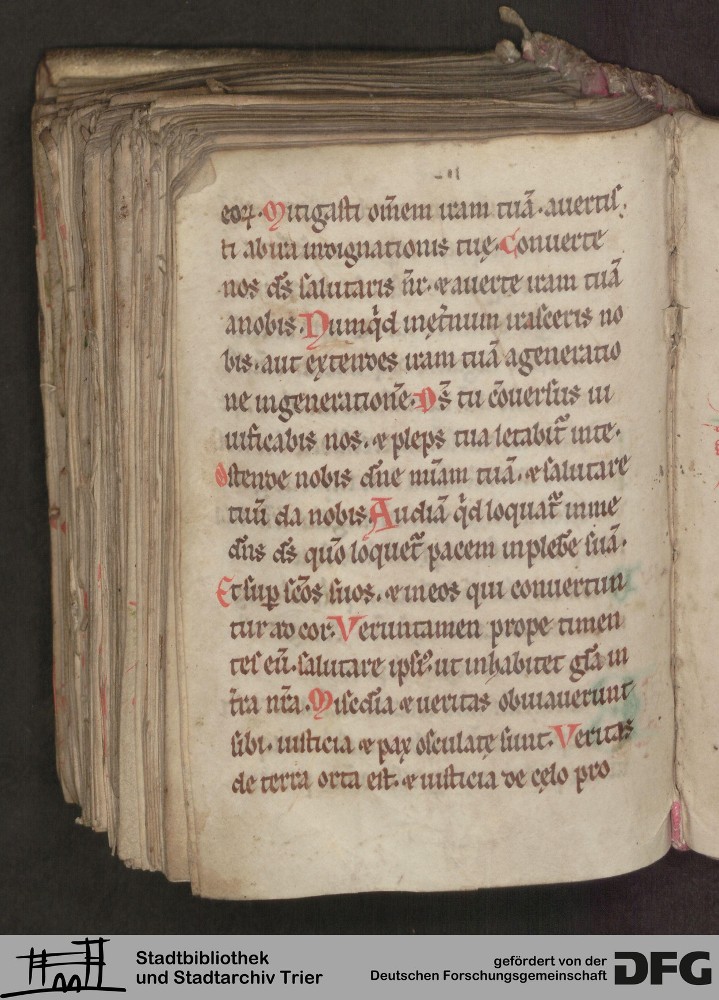 eoꝝ. Mitigasti om̄em iram tuā. auertis,
ti ab ira indignationis tuę. Conuerte
nos d̄s salutaris n̄r. ⁊ auerte iram tuā
a nobis. Numq̇d in et̄num irasceris no
bis. aut extendes iram tuā a generatio
ne in generationē. D̄s tu c̄ouersus ui
uificabis nos. ⁊ plebs tua letabit᷑ in te.
Ostende nobis dn̄e mīam tuā. ⁊ salutare
tuū da nobis. Audiā q̇d loquat᷑ in me
dn̄s d̄s quō loquet᷑ pacem in plebē suā.
Et sup̱ sc̄os suos. ⁊ in eos qui conuertun
tur ad cor. Veruntamen prope timen
tes eū. salutare ipsi᷒. ut inhabitet gl̄a in
t̄ra nr̄a. Misedīa ⁊ ueritas obuiauerunt
sibi. iusticia ⁊ pax osculatę sunt. Veritas
de terra orta est. ⁊ iusticia de cęlo pro
Stadtbibliothek
und Stadtarchiv Trier
gefördert von der
Deutschen Forschungsgemeinschaft
DFG